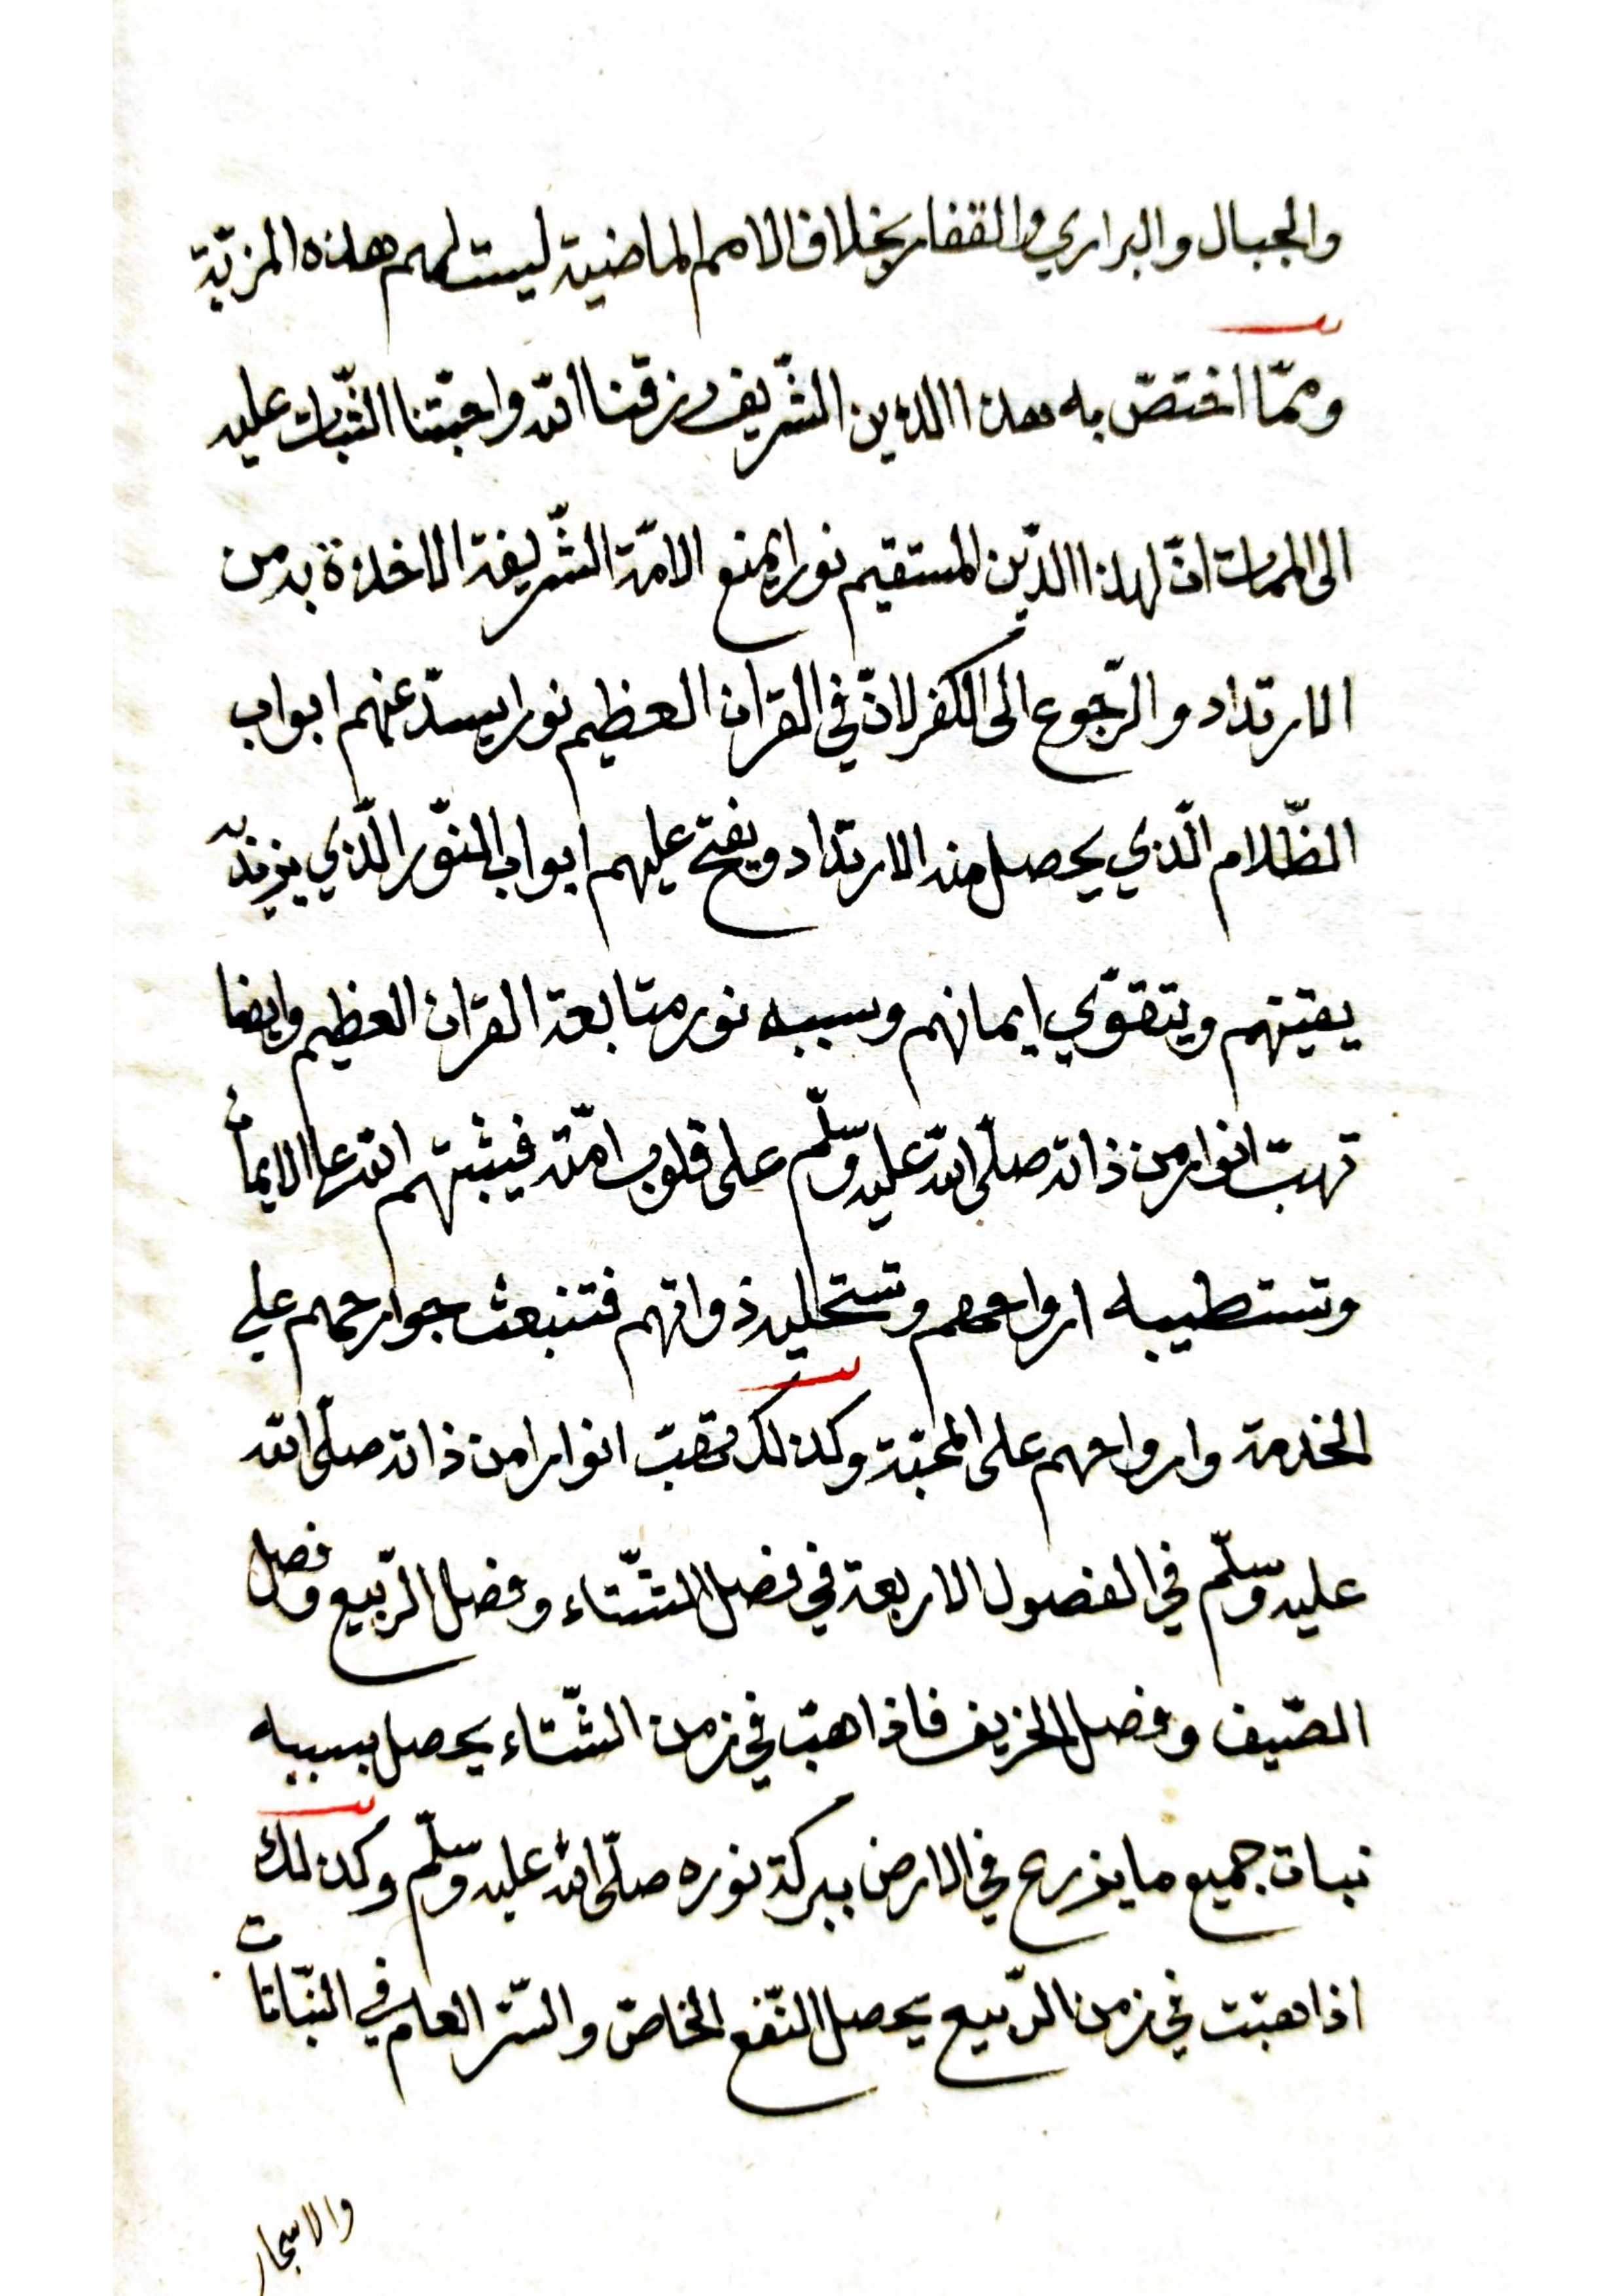 والجبال والبراري والقفار بخلاف الامم الماضية ليست لهم هذه المزيّة
وممّا اختصّ به هذا الدين الشّريف رزقنا الله واحبّتنا الثّبات عليه
الى الممات انّ لهذا الدّين المستقيم نورا يمنع الامّة الشّريفة الاخذة به من
الارتداد والرّجوع الى الكفر لانّ في القران العظيم نورا يسدّ عنهم ابواب
الظّلام الّذي يحصل منه الارتداد ويفتح عليهم ابواب النّور الّذي يزيد به
يقينهم ويتقوّي ايمانهم وسببه نور متابعة القران العظيم وايضا
تهبّ انوار من ذاته صلّى الله عليه وسلّم على قلوب امّته فيثبتهم الله على الايمان
وتستطيبه ارواحهم وتستحليه ذواتهم فتنبعث جوارحهم علي
الخدمة وارواحهم على المحبّة وكذلك تهبّ انوارا من ذاته صلّى الله
عليه وسلّم في الفصول الاربعة في فصل الشّتاء وفصل الرّبيع وفصل
الصّيف وفصل الخريف فاذا هبّ في زمن الشّتاء يحصل بسببه
نبات جميع ما يزرع في الارض ببركة نوره صلّى الله عليه وسلّم وكذلك
اذا هبّت في زمن الرّبيع يحصل النّفع الخاصّ والسّر العام في النبّاتات
والاشجار